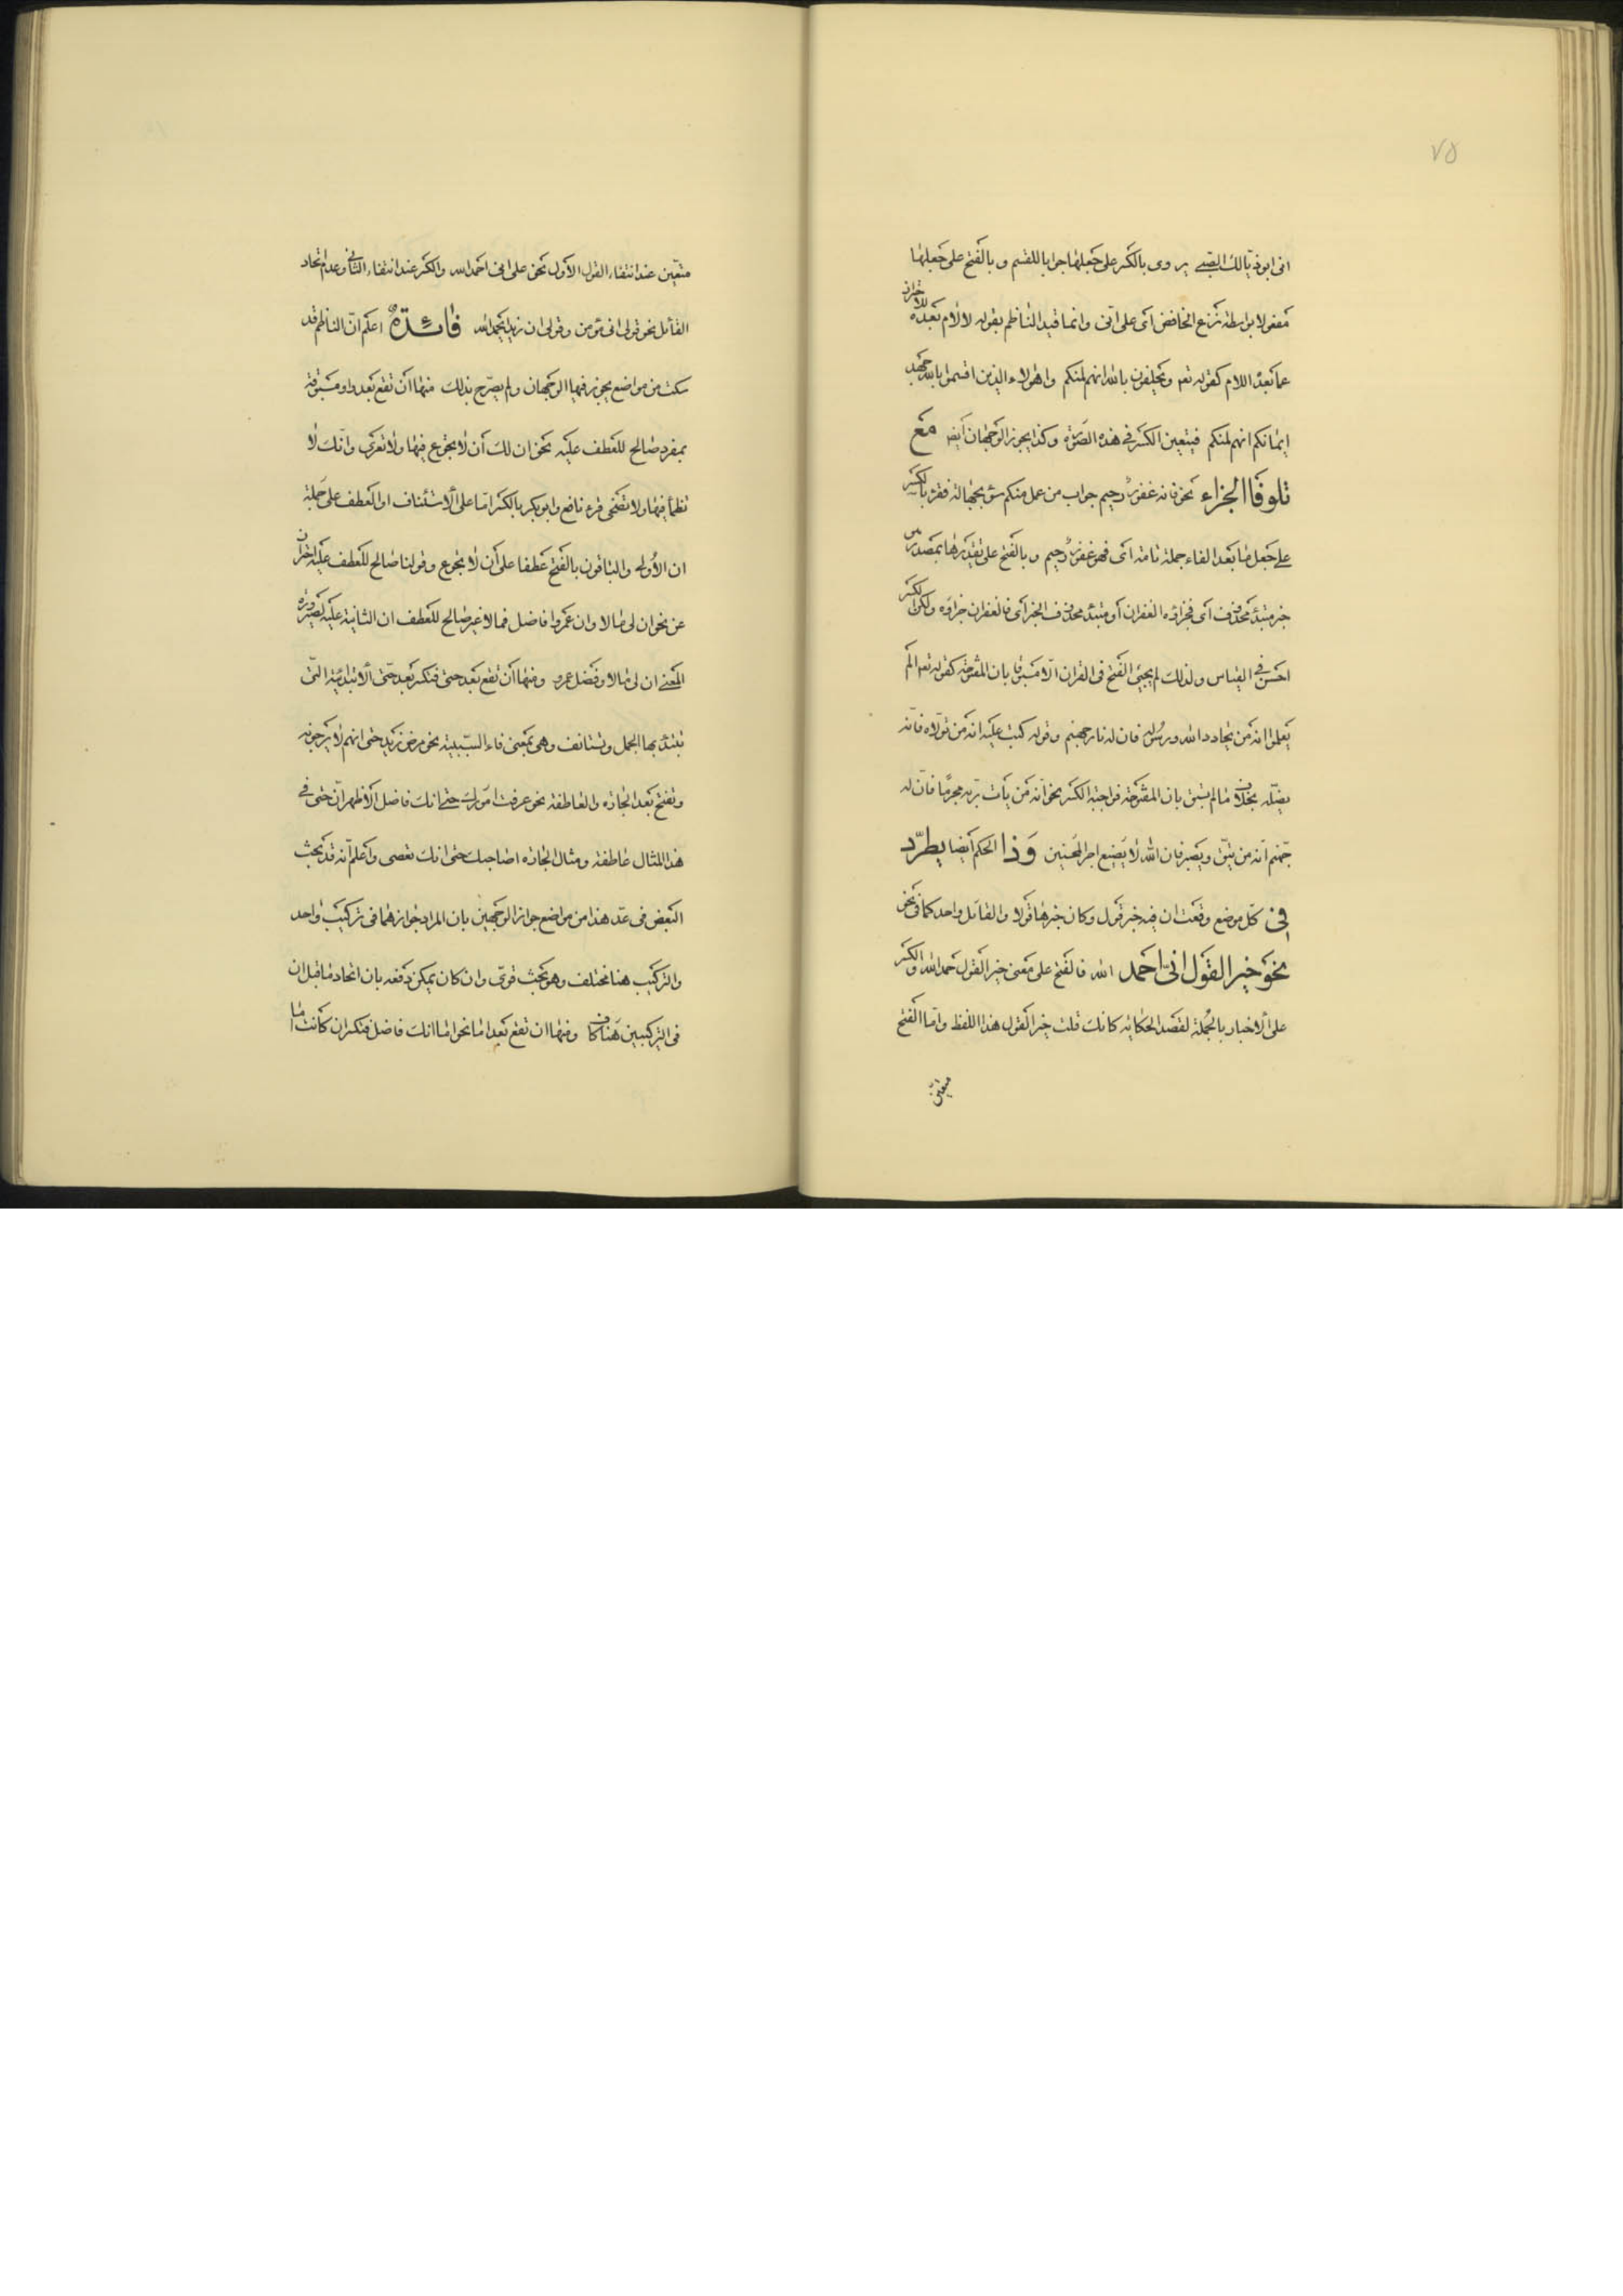 ٧٥
انى ابو ذيّالك الصبى يروى بالكسر على جعلها جوابا للقسم و بالفتح على جعلها
مفعولا بواسطة نزع الخافض اى على انى وانما قيد الناظم بقوله لا لام بعده للاحتراز
عما بعده اللام كقوله تعه ويحلفون بالله انهم لمنكم واهؤلاء الذين اقسموا بالله جهد
ايمانكم انهم لمنكم فيتعين الكسر فى هذه الصورة وكذا يجوز الوجهان ايضا مع
تلو فا الجزاء نحو فانه غفور رحيم جواب من عمل منكم سوء بجهالة فقرء بالكسر
على جعل ما بعد الفاء جملة تامة اى فهو غفور رحيم و بالفتح على تقديرها بمصدر هو
خبر مبتدء محذوف اى فجزاؤه الغفران او مبتدء محذوف الخبر اى فالغفران جزاؤه ولكن الكسر
احسن فى القياس ولذلك لم يجئ الفتح فى القران الا مسبوقا بان المفتوحة كقوله تعه الم
يعلموا انه من يحادد الله ورسوله فان له نار جهنم وقوله كتب عليه انه من تولاه فانه
يضله بخلاف ما لم يسبق بان المفتوحة فواجبة الكسر نحو انه من يأت ربه مجرما فان له
جهنم انه من يتق ويصبر فان الله لا يضيع اجر المحسنين وذا الحكم ايضا يطرد
فى كل موضع وقعت ان فيه خبر قول وكان خبرها قولا والقائل واحد كما فى نحو
نحو خير القول انى احمد الله فالفتح على معنى خير القول حمد الله والكسر
على الاخبار بالجملة لقصد الحكاية كانك قلت خير القول هذا اللفظ واما الفتح
متعين
متعين عند انتفاء القول الاول نحو على انى احمد الله والكسر عند انتفاء الثانى وعدم اتحاد
القائل نحو قولى انى مؤمن وقولى ان زيدا يحمد الله فائدة اعلم ان الناظم قد
سكت من مواضع يجوز فيها الوجهان ولم يصرح بذلك منها ان تقع بعد واو مسبوقة
بمفرد صالح للعطف عليه نحو ان لك ان لا تجوع فيها ولا تعرى وانك لا
تظمأ فيها ولا تضحى قرء نافع وابو بكر بالكسر اما على الاستئناف او العطف على جملة
ان الاولى والباقون بالفتح عطفا على ان لا تجوع وقولنا صالح للعطف عليه احتراز
عن نحو ان لى مالا وان عمروا فاضل فمالا غير صالح للعطف ان الثانية عليه لصيرورة
المعنى ان لى مالا وفضل عمرو ومنها ان تقع بعد حتى فتكسر بعد حتى الابتدائية التى
تبتدء بها الجمل وتستانف وهى بمعنى فاء السببية نحو مرض زيد حتى انهم لا يرجونه
وتفتح بعد الجارة والعاطفة نحو عرفت امورك حتى انك فاضل الاظهر ان حتى فى
هذا المثال عاطفة ومثال الجارة اصاحبك حتى انك تعصى واعلم انه قد بحث
البعض فى عد هذا من مواضع جواز الوجهين بان المراد جوازهما فى تركيب واحد
والتركيب هنا مختلف وهو بحث قوى وان كان يمكن دفعه بان اتحاد ما قبل ان
فى التركيبين هنا كاف ومنها ان تقع بعد اما نحو اما انك فاضل فتكسر ان كانت اما